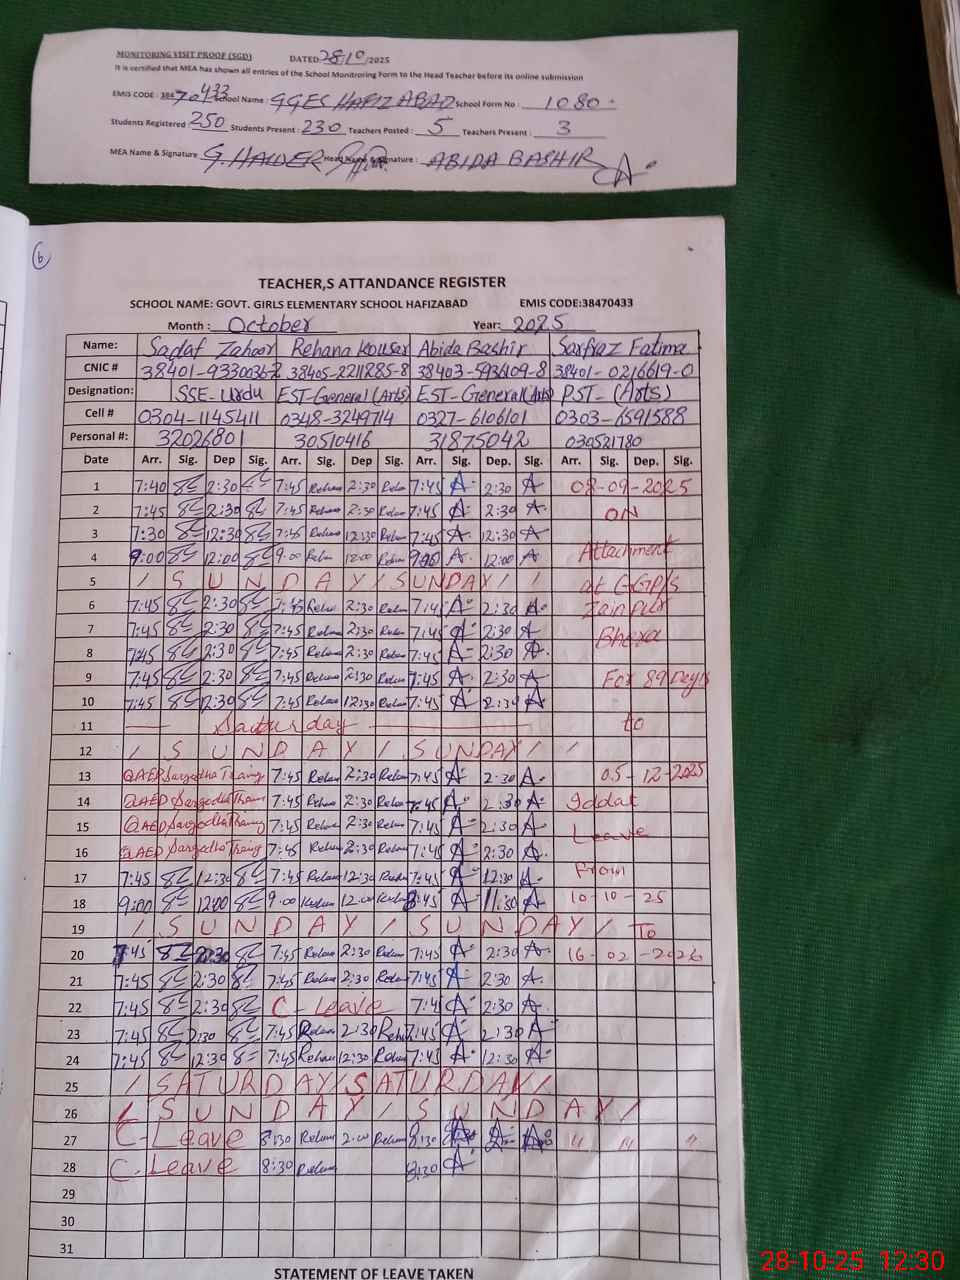 MONITORING VISIT PROOF (SGD) DATED: 28-10/2025
It is certified that MEA has shown all entries of the School Monitroring Form to the Head Teacher before its online submission
EMIS CODE : 38470433 School Name : GGES HAFIZABAD School Form No : 1080
Students Registered 250 Students Present : 230 Teachers Posted : 5 Teachers Present : 3
MEA Name & Signature G. HAIDER Head Name & Signature : ABIDA BASHIR
6
TEACHER,S ATTANDANCE REGISTER
SCHOOL NAME: GOVT. GIRLS ELEMENTARY SCHOOL HAFIZABAD EMIS CODE:38470433
Month : October Year: 2025
Name: Sadaf Zahoor Rehana Kousar Abida Bashir Sarfraz Fatima
CNIC # 38401-9330036-2 38405-2211285-8 38403-5936409-8 38401-0216619-0
Designation: SSE-Urdu EST-General (Arts) EST-General (Arts) PST-(Arts)
Cell # 0304-1145411 0348-3249714 0327-6106101 0303-6591588
Personal #: 32026801 30510416 31875042 030521780
Date Arr. Sig. Dep Sig. Arr. Sig. Dep Sig. Arr. Sig. Dep. Sig. Arr. Sig. Dep. Sig.
1 7:40 2:30 7:45 Rehana 2:30 Rehana 7:45 A 2:30 A 08-09-2025
2 7:45 2:30 7:45 Rehana 2:30 Rehana 7:45 A 2:30 A ON
3 7:30 12:30 7:45 Rehana 12:30 Rehana 7:45 A 12:30 A
4 9:00 12:00 9:00 Rehana 12:00 Rehana 9:00 A 12:00 A Attachment
5 / SUNDAY / SUNDAY / / at GGP/S
6 7:45 2:30 7:45 Rehana 2:30 Rehana 7:45 A 2:30 A Zainpur
7 7:45 2:30 7:45 Rehana 2:30 Rehana 7:45 A 2:30 A Bhera
8 7:45 2:30 7:45 Rehana 2:30 Rehana 7:45 A 2:30 A
9 7:45 2:30 7:45 Rehana 2:30 Rehana 7:45 A 2:30 A For 89 Days
10 7:45 12:30 7:45 Rehana 12:30 Rehana 7:45 A 2:30 A
11 Saturday to
12 / SUNDAY / SUNDAY / /
13 QAED Sargodha Traing 7:45 Rehana 2:30 Rehana 7:45 A 2:30 A 05-12-2025
14 QAED Sargodha Traing 7:45 Rehana 2:30 Rehana 7:45 A 2:30 A Iddat
15 QAED Sargodha Traing 7:45 Rehana 2:30 Rehana 7:45 A 2:30 A Leave
16 QAED Sargodha Traing 7:45 Rehana 2:30 Rehana 7:45 A 2:30 A From
17 7:45 12:30 7:45 Rehana 12:30 Rehana 7:45 A 12:30 A
18 9:00 12:00 9:00 Rehana 12:00 Rehana 8:45 A 11:30 A 10-10-25
19 / SUNDAY / SUNDAY / To
20 7:45 2:30 7:45 Rehana 2:30 Rehana 7:45 A 2:30 A 16-02-2026
21 7:45 2:30 7:45 Rehana 2:30 Rehana 7:45 A 2:30 A
22 7:45 2:30 C-Leave 7:45 A 2:30 A
23 7:45 2:30 7:45 Rehana 2:30 Rehana 7:45 A 2:30 A
24 7:45 12:30 7:45 Rehana 12:30 Rehana 7:45 A 12:30 A
25 / SATURDAY / SATURDAY /
26 / SUNDAY / SUNDAY /
27 C-Leave 8:30 Rehana 2:00 Rehana 8:30 " " "
28 C.Leave 8:30 Rehana 8:30 A
29
30
31
STATEMENT OF LEAVE TAKEN
28-10-25 12:30